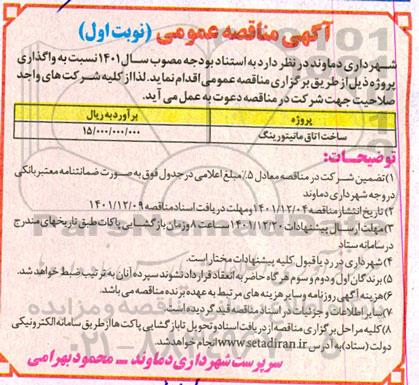 آگهی مناقصه عمومی (نوبت اول)
شهرداری دماوند در نظر دارد به استناد بودجه مصوب سال ۱۴۰۱ نسبت به واگذاری
پروژه ذیل از طریق برگزاری مناقصه عمومی اقدام نماید. لذا از کلیه شرکت های واجد
صلاحیت جهت شرکت در مناقصه دعوت به عمل می آید.
پروژه برآورد به ریال
ساخت اتاق مانیتورینگ ۱۵/۰۰۰/۰۰۰/۰۰۰
توضیحات:
۱) تضمین شرکت در مناقصه معادل ۵٪ مبلغ اعلامی در جدول فوق به صورت ضمانتنامه معتبر بانکی
در وجه شهرداری دماوند
۲) تاریخ انتشار مناقصه ۱۴۰۱/۱۲/۰۴ و مهلت دریافت اسناد مناقصه ۱۴۰۱/۱۲/۰۹
۳) مهلت ارسال پیشنهادات ۱۴۰۱/۱۲/۲۰ ساعت ۸ و زمان بازگشایی پاکات طبق تاریخهای مندرج
در سامانه ستاد
۴) شهرداری در رد یا قبول کلیه پیشنهادات مختار است.
۵) برندگان اول و دوم و سوم هرگاه حاضر به انعقاد قرارداد نشوند سپرده آنان به ترتیب ضبط خواهد شد.
۶) هزینه آگهی روزنامه و سایر هزینه های مرتبط به عهده برنده مناقصه می باشد.
۷) سایر اطلاعات و جزئیات در اسناد مناقصه قید گردیده است.
۸) کلیه مراحل برگزاری مناقصه از دریافت اسناد و تحویل تا بازگشایی پاکت ها از طریق سامانه الکترونیکی
دولت (ستاد) به آدرس www.setadiran.ir انجام خواهد شد.
سرپرست شهرداری دماوند - محمود بهرامی